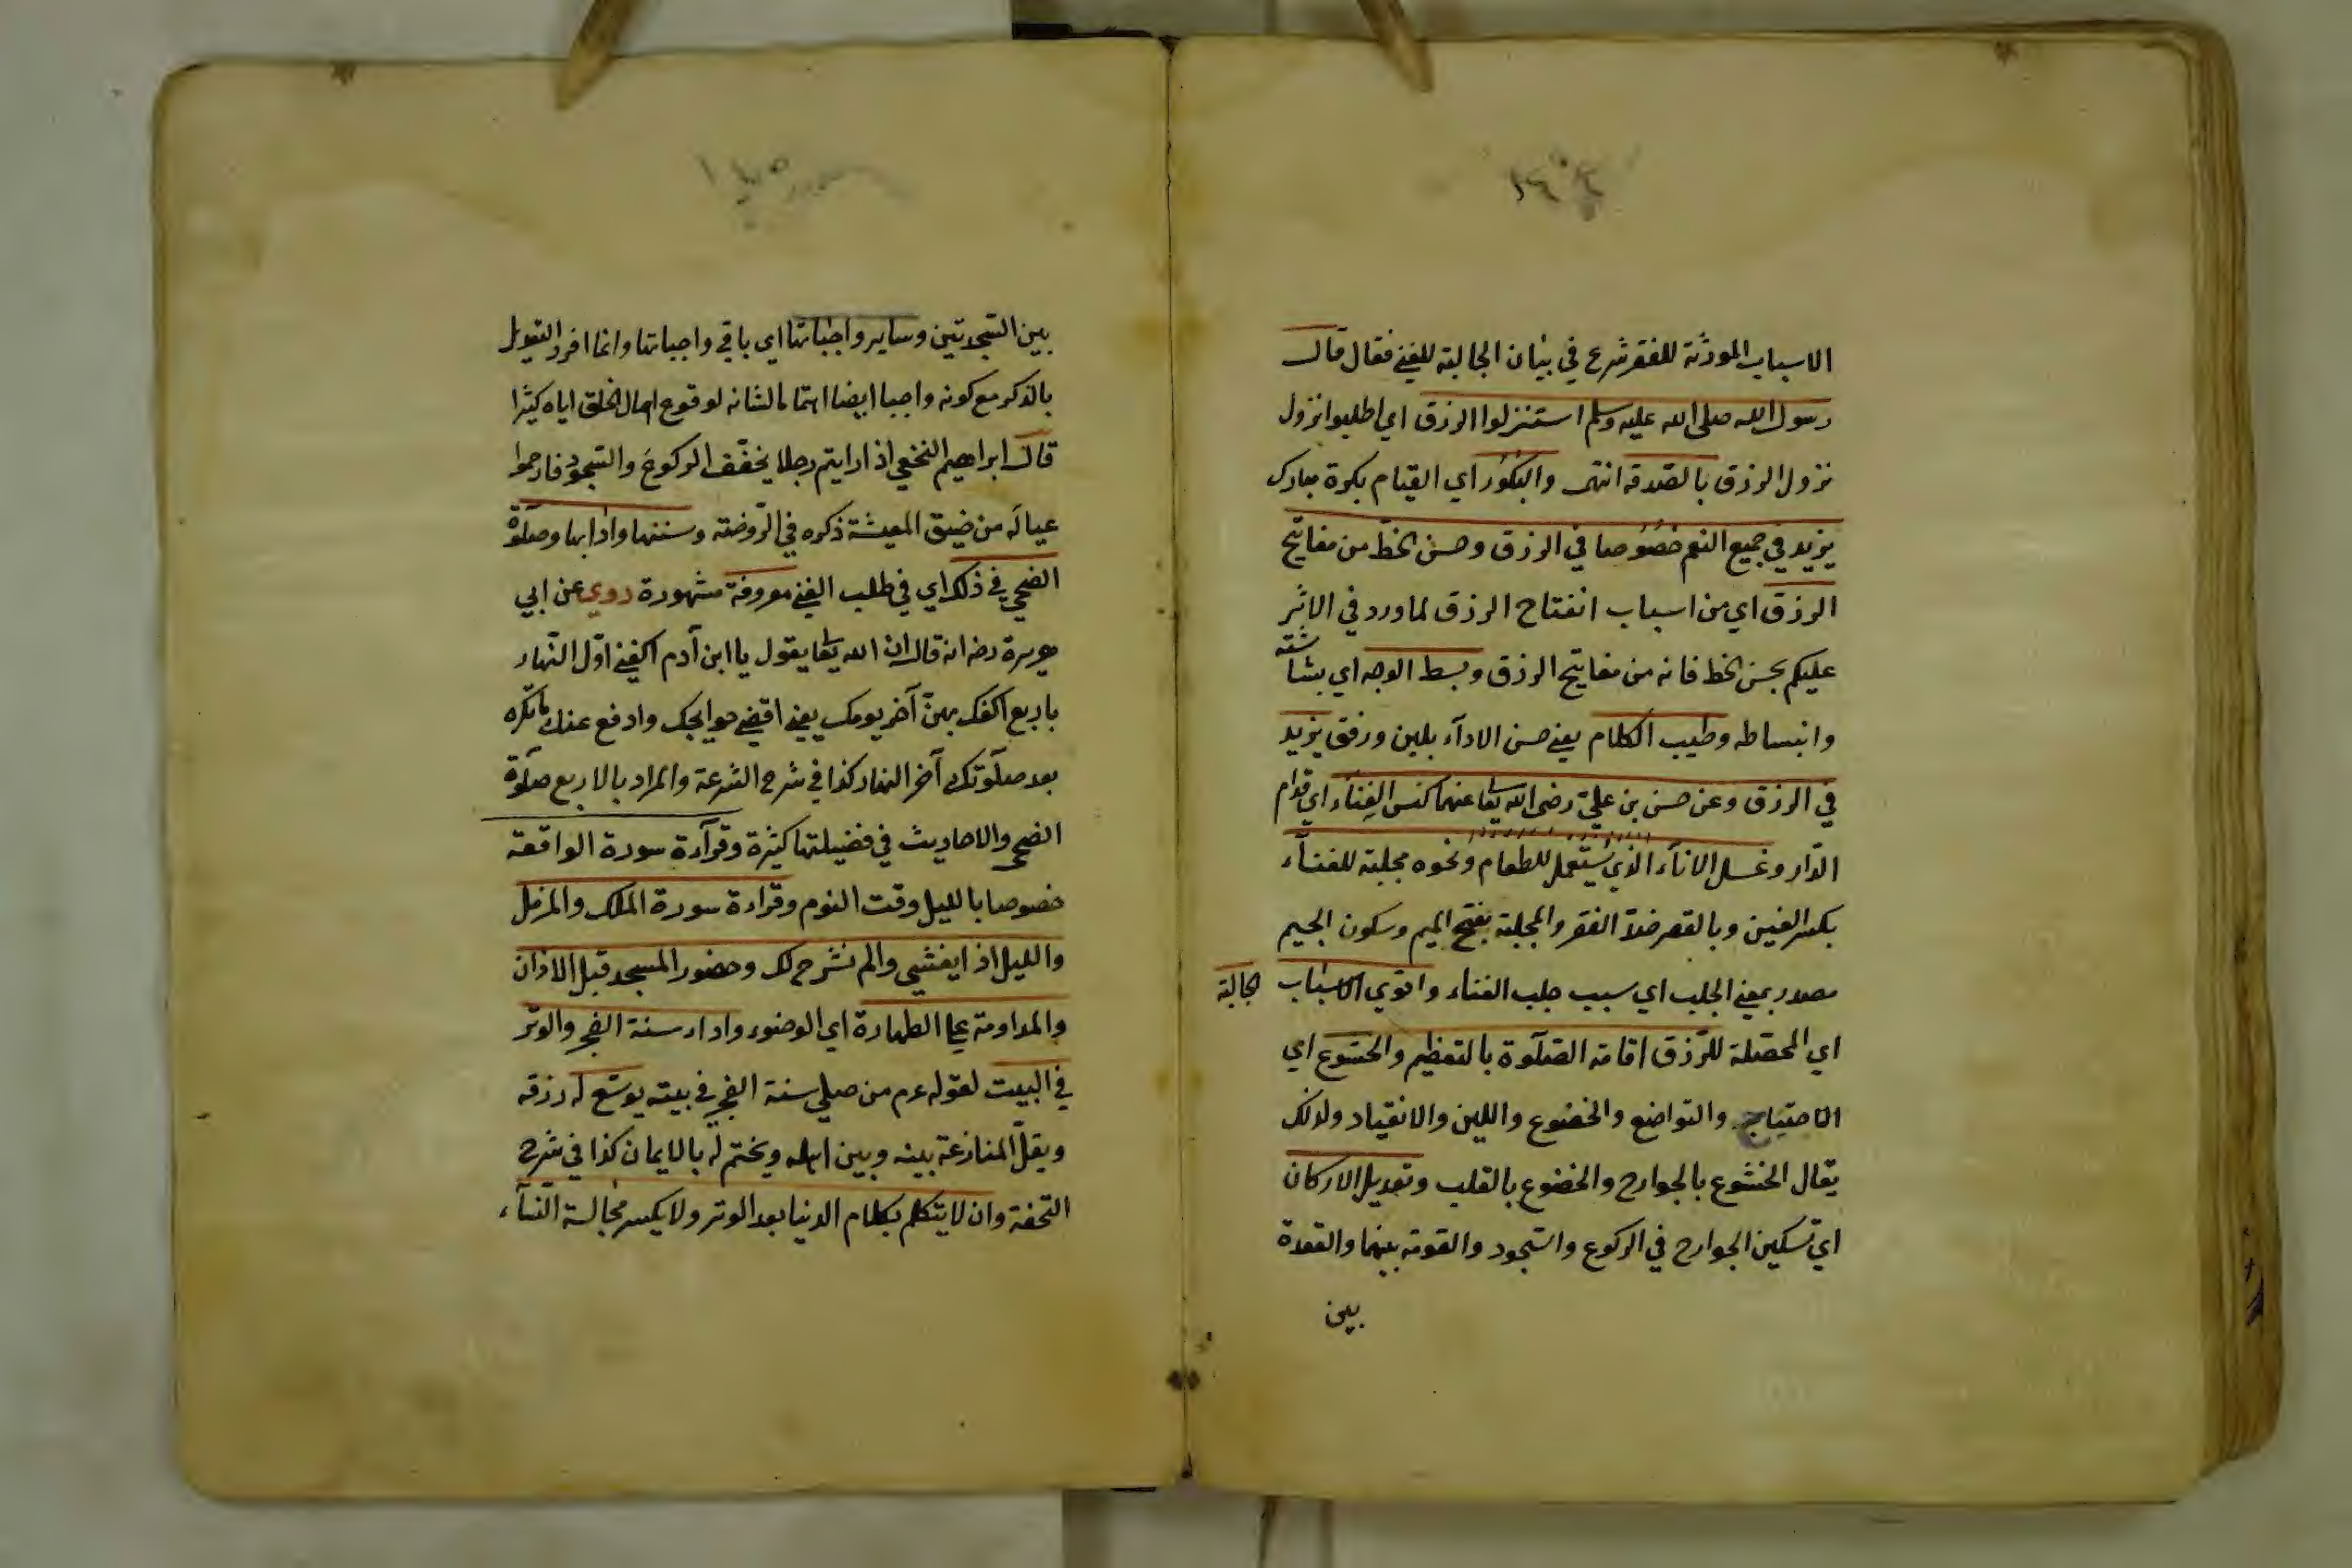 الاسباب المورثة للفقر شرع في بيان الجالبة للغنى فقال قال
رسول الله صلى الله عليه وسلم استنزلوا الرزق اي اطلبوا نزول
نزول الرزق بالصدقة انتهى والبكور اي القيام بكرة مبارك
يزيد في جميع النعم خصوصا في الرزق وحسن الخط من مفاتيح
الرزق اي من اسباب انفتاح الرزق لما ورد في الاثر
عليكم بحسن الخط فانه من مفاتيح الرزق وبسط الوجه اي بشاشته
وانبساطه وطيب الكلام يعني حسن الادآء بلين ورفق يزيد
في الرزق وعن حسن بن علي رضى الله تعا عنهما كنس الفناء اي قدام
الدار وغسل الانآء الذي يستعمل للطعام ونحوه مجلبة للغنآء
بكسر الغين وبالقصر ضد الفقر والمجلبة بفتح الميم وسكون الجيم
مصدر بمعنى الجلب اي سبب جلب الغناء واقوى الاسباب الجالبة
اي المحصلة للرزق اقامة الصلوة بالتعظيم والخشوع اي
الاحتياج والتواضع والخضوع واللين والانقياد ولذلك
يقال الخشوع بالجوارح والخضوع بالقلب وتعديل الاركان
اي تسكين الجوارح في الركوع والسجود والقومة بينهما والقعدة
بين
بين السجدتين وساير واجباتها اي باقي واجباتها وانما افرد التعديل
بالذكر مع كونه واجبا ايضا اهتماما لشانه لوقوع اهمال الخلق اياه كثيرا
قال ابراهيم النخعي اذا رايتم رجلا يخفف الركوع والسجود فارحموا
عياله من ضيق المعيشة ذكره في الروضة وسننها وادابها وصلوة
الضحى في ذلك اي في طلب الغنى معروفة مشهورة روي عن ابي
هريرة رضه انه قال ان الله تعا يقول يا ابن آدم اكفني اول النهار
باربع اكفك بهن آخر يومك يعني اقضي حوايجك وادفع عنك ما تكره
بعد صلوتك آخر النهار كذا في شرح الشرعة والمراد بالاربع صلوة
الضحى والاحاديث في فضيلتها كثيرة وقرآءة سورة الواقعة
خصوصا بالليل وقت النوم وقراءة سورة الملك والمزمل
والليل اذا يغشى والم نشرح لك وحضور المسجد قبل الاذان
والمداومة على الطهارة اي الوضوء واداء سنة الفجر والوتر
في البيت لقوله عم من صلى سنة الفجر في بيته يوسع له رزقه
ويقل المنازعة بينه وبين اهله ويختم له بالايمان كذا في شرح
التحفة وان لا يتكلم بكلام الدنيا بعد الوتر ولا يكسر مجالسة النسآء